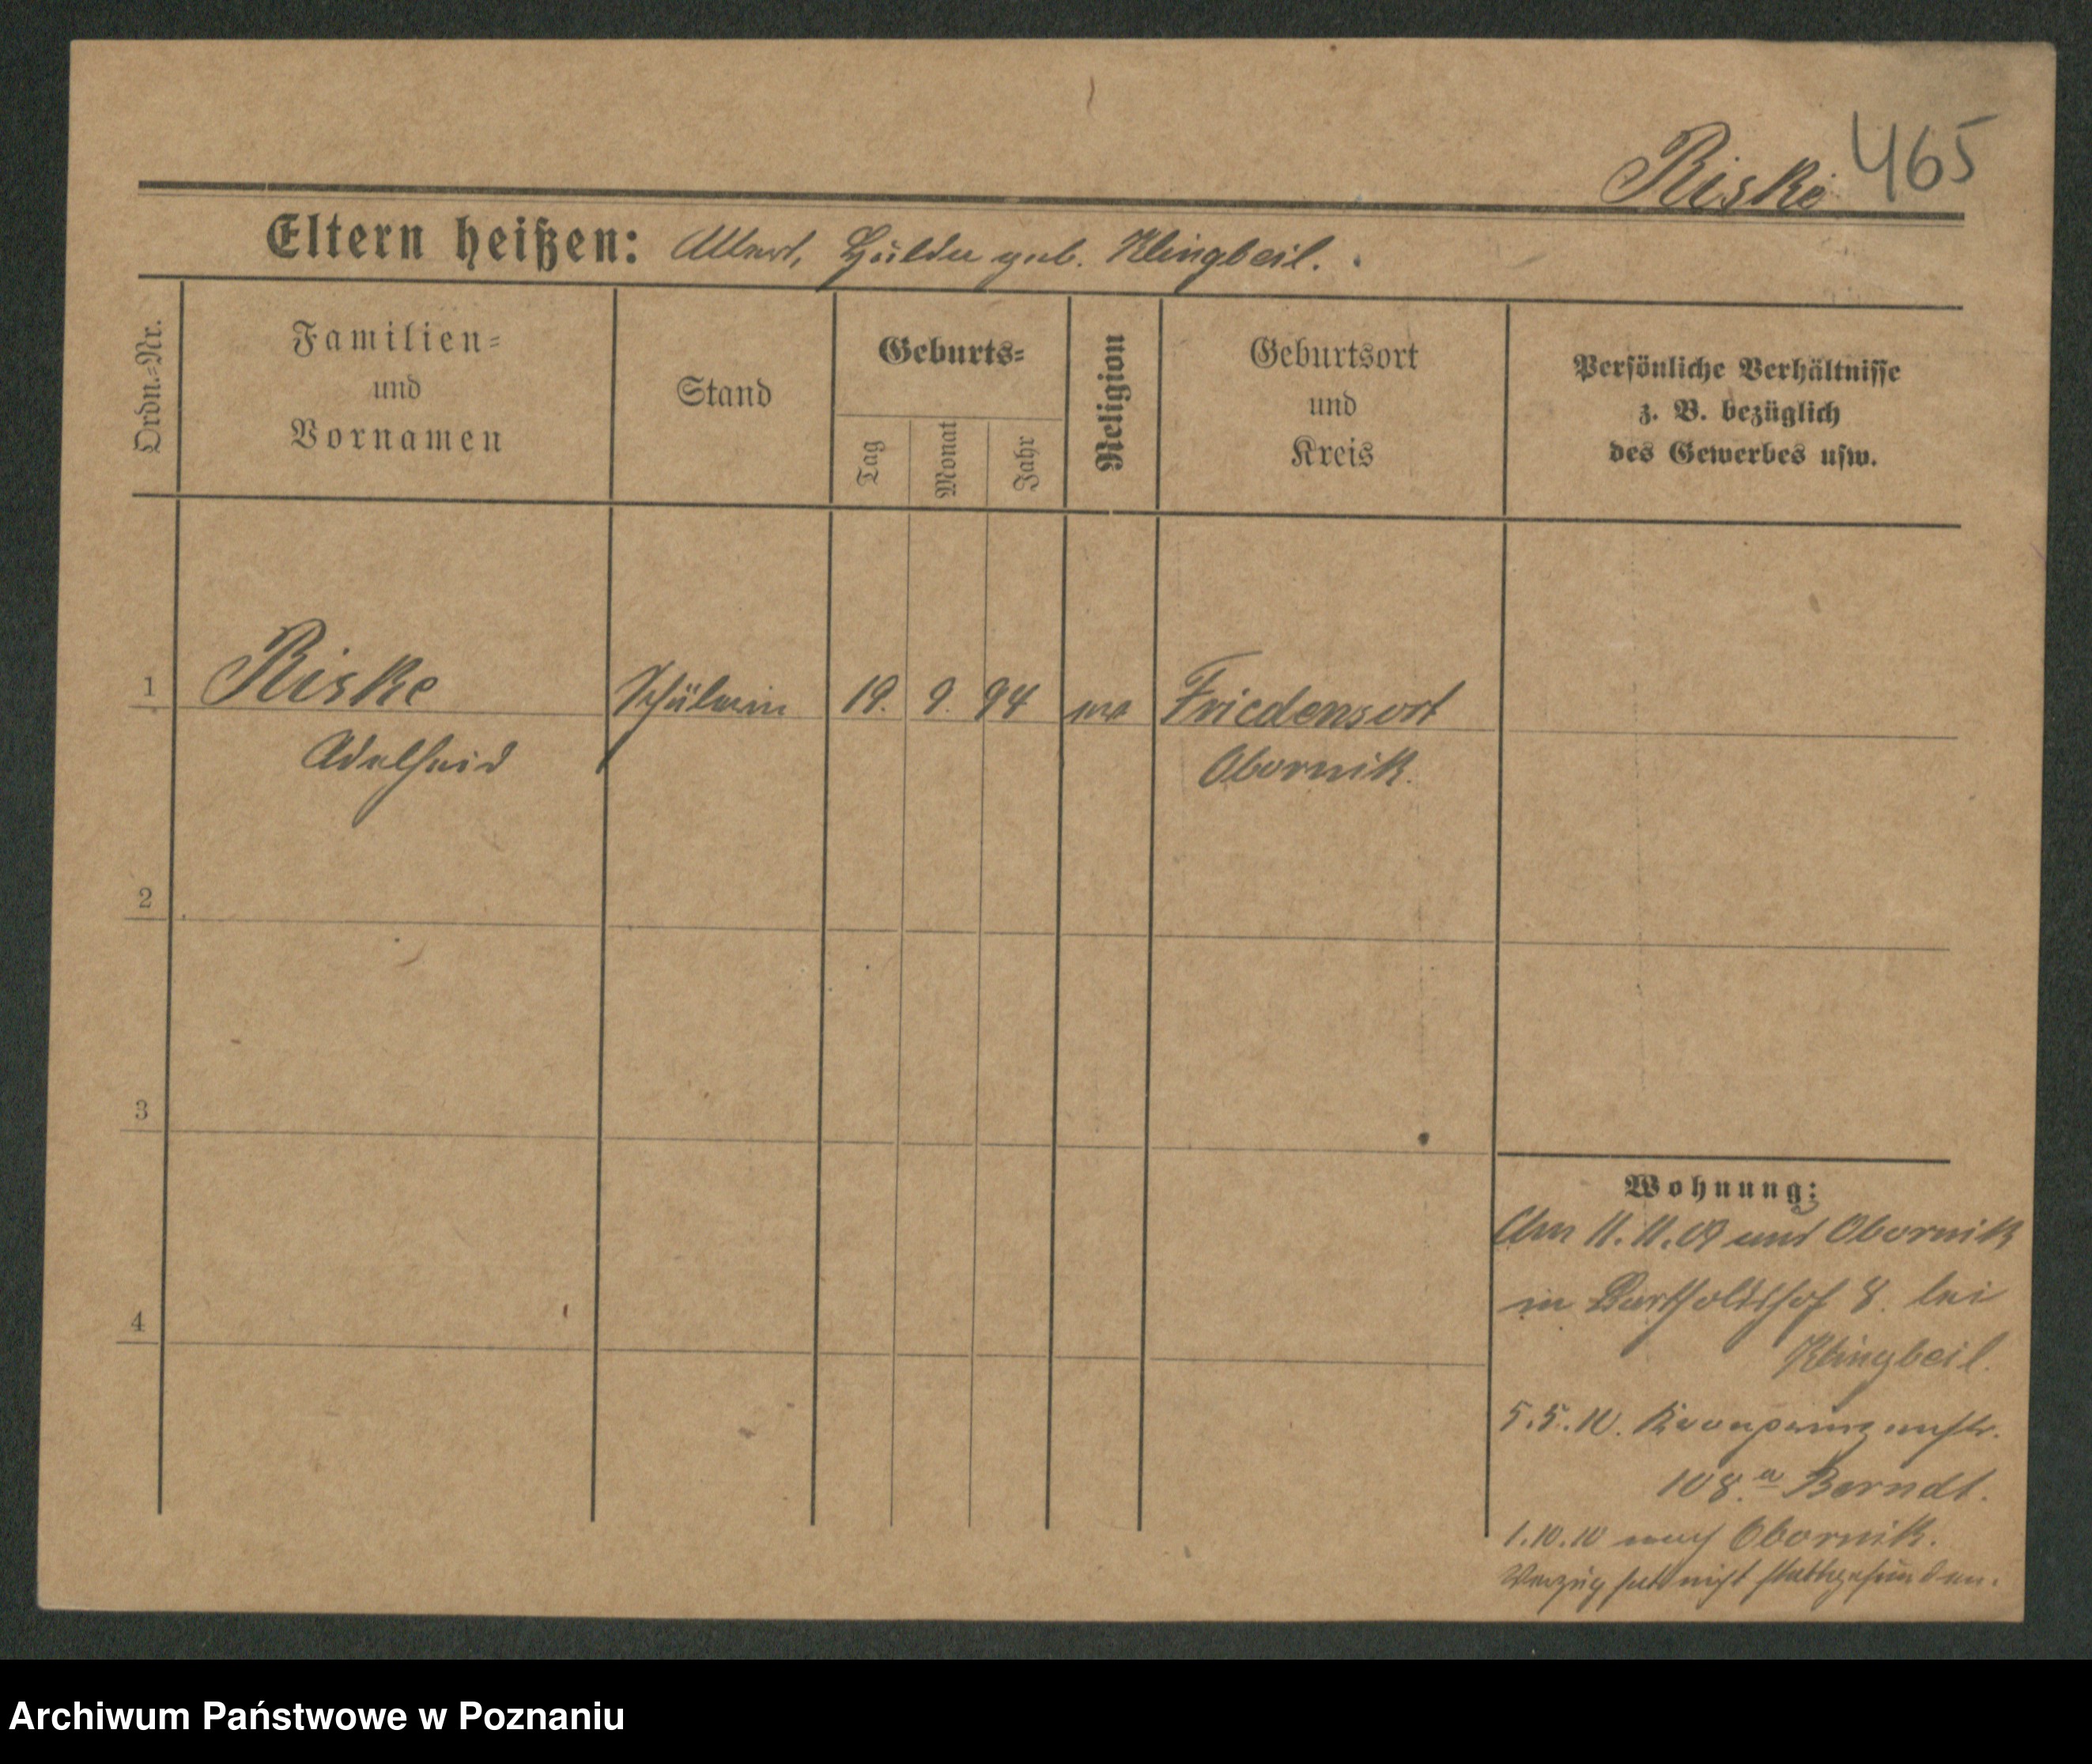 Riske 465
Eltern heißen: Albert, Hulda geb. Klingbeil.
Ordn.-Nr.
Familien-
und
Vornamen
Stand
Geburts-
Tag
Monat
Jahr
Religion
Geburtsort
und
Kreis
Persönliche Verhältnisse
z. B. bezüglich
des Gewerbes usw.
1 Riske Schülerin 19. 9. 94 Friedensort
Adelheid Obornik.
2
3
4
Wohnung:
Am 11.11.09 aus Obornik
in Bartholdshof 8. bei
Klingbeil.
5.5.10. Kronprinzenstr.
108.a Berndt.
1.10.10 nach Obornik.
Verzug hat nicht stattgefunden.
Archiwum Państwowe w Poznaniu